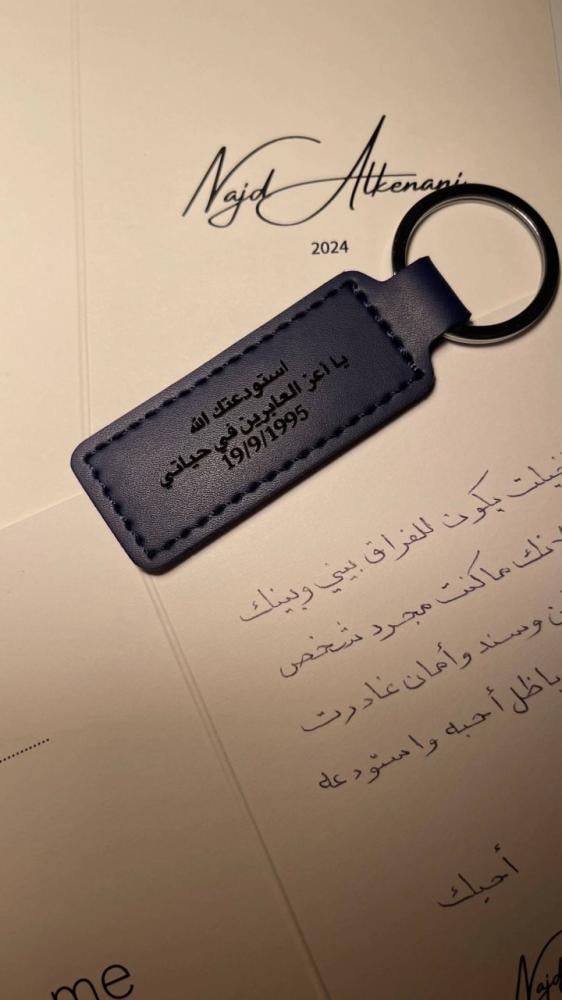 Najd Alkenani
2024
استودعتك الله
يا أعز العابرين في حياتي
19/9/1995
يكون للفراق بيني وبينك
لانك ماكنت مجرد شخص
وسند وأمان غادرت
أحبه واستودعه
أحبك
me
Najd